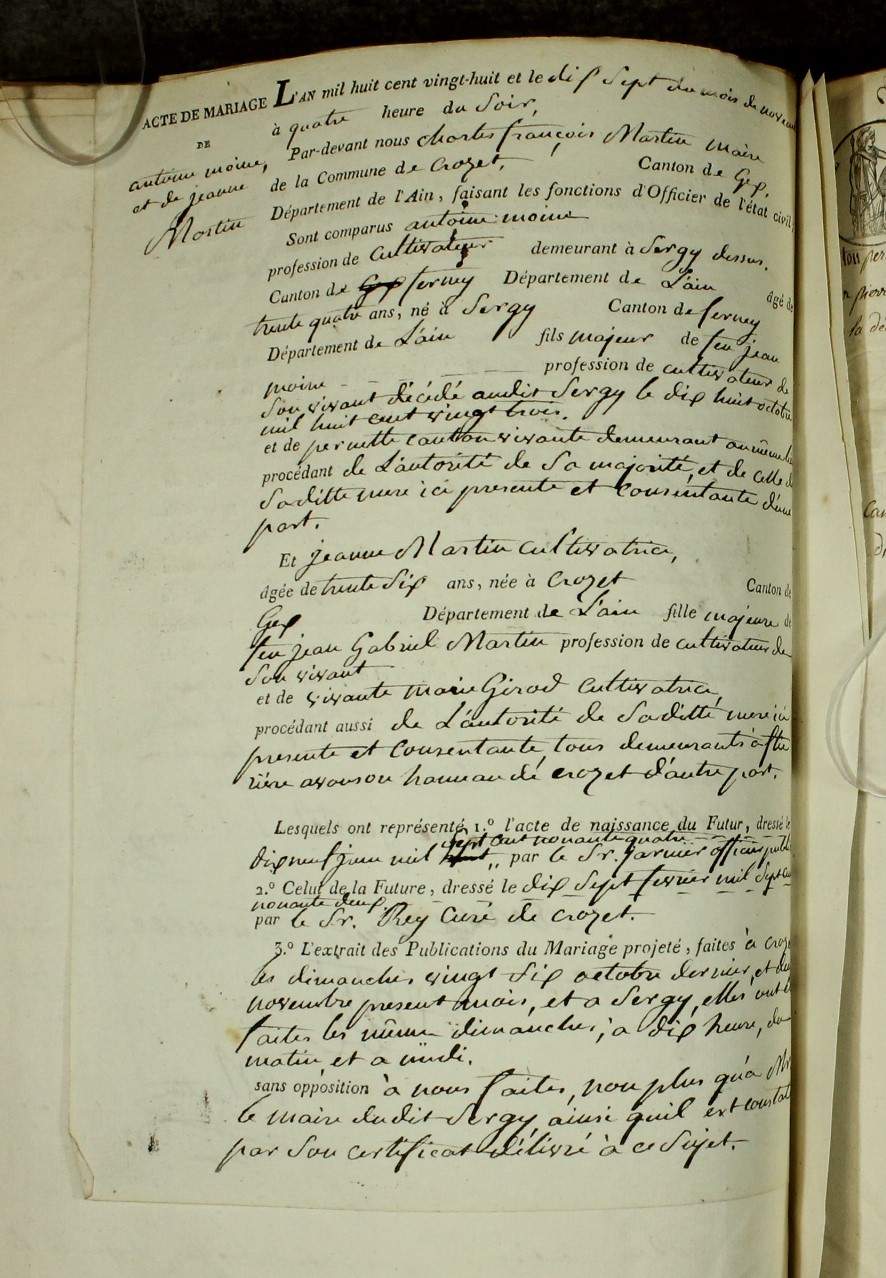 ACTE DE MARIAGE
DE
antoine moine,
et de jeanne
Martin
L'AN mil huit cent vingt-huit et le dix Sept du mois de novem
à quatre heure du Soir,
Par-devant nous charles françois Martin maire
de la Commune de Crozet, Canton de Gex,
Département de l'Ain, faisant les fonctions d'Officier de l'état civil,
Sont comparus antoine moine
profession de Cultivateur demeurant à Sergy dessus,
Canton de Gex ferney Département de L'ain âgé de
trente quatre ans, né à Sergy Canton de ferney
Département de L'ain fils majeur de feu jean
moine profession de cultivateur de
Son vivant décédé audit Sergy le dix huit octobre
mil huit cent vingt trois,
et de pernette vivante demeurant au même
procédant de L'autorité de Sa majorité, et de celle d
Saditte mere ici presente et Consentante d'une
part.
Et jeanne Martin cultivatrice,
âgée de trente Six ans, née à Crozet Canton de
Gex Département de L'ain fille majeure de
feu jean Gabriel Martin profession de cultivateur de
Son vivant
et de vivante marie Girod Cultivatrice
procédant aussi de L'autorité de Saditte mere ici
presente et Consentante, tous demeurants
rière avouson hameau de crozet d'autre part.
Lesquels ont représenté 1.º l'acte de naissance du Futur, dressé le
sept cent nonante quatre
dix neuf juin mil par le Sr. garnier officier public
2.º Celui de la Future, dressé le dix Sept fevrier mil Sept cen
nonante deux
par le Sr. Rey Curé de crozet.
3.º L'extrait des Publications du Mariage projeté, faites à Croz
les dimanches vingt Six octobre dernier, et deux
novembre present mois, et a Sergy, elles ont é
faites les même dimanches, a dix heure, du
matin et a midi.
sans opposition à nous faites, non plus qu'a Mr
le maire dudit Sergy, ainsi quil est constat
par Son certificat délivré à ce Sujet.